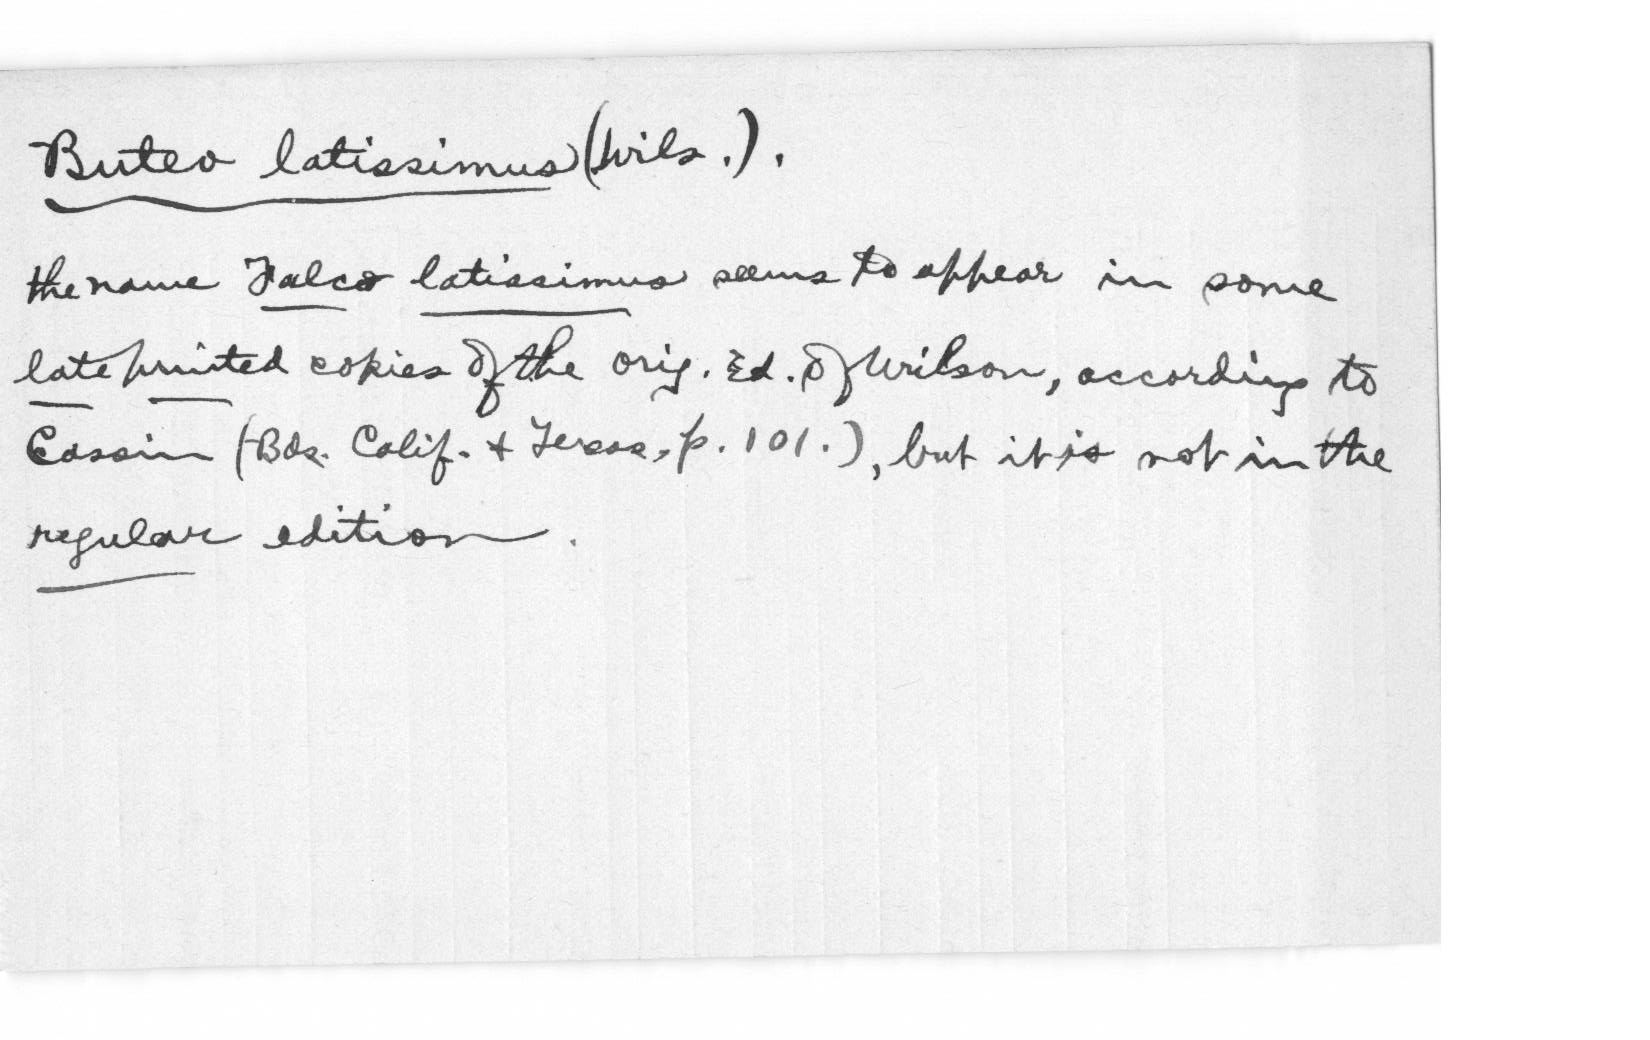 Buteo latissimus (Wils.).
the name Falco latissimus seems to appear in some
late printed copies of the orig. Ed. of Wilson, according to
Cassin (Bds. Calif. + Texas, p. 101.), but it is not in the
regular edition.